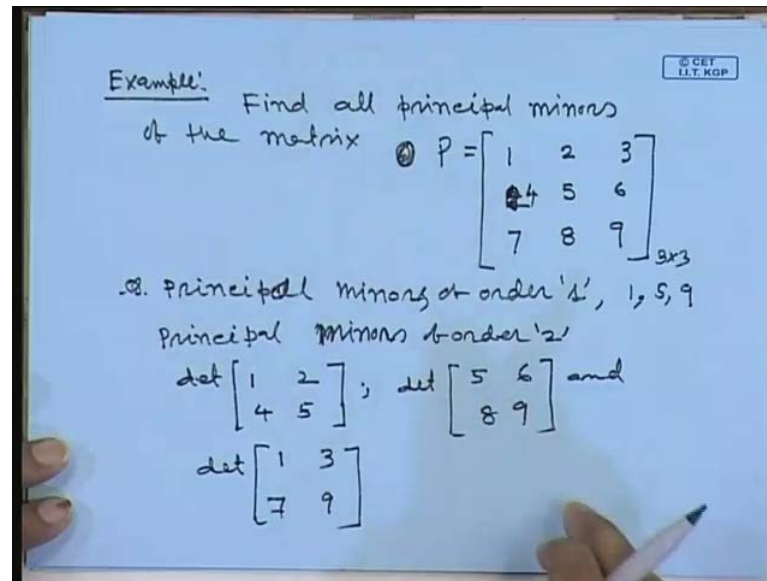 © CET
I.I.T. KGP
Example:
Find all principal minors
of the matrix P = [1 2 3
4 5 6
7 8 9] 3x3
Principal minors of order '1', 1, 5, 9
Principal minors of order '2'
det [1 2
4 5]; det [5 6
8 9] and
det [1 3
7 9]